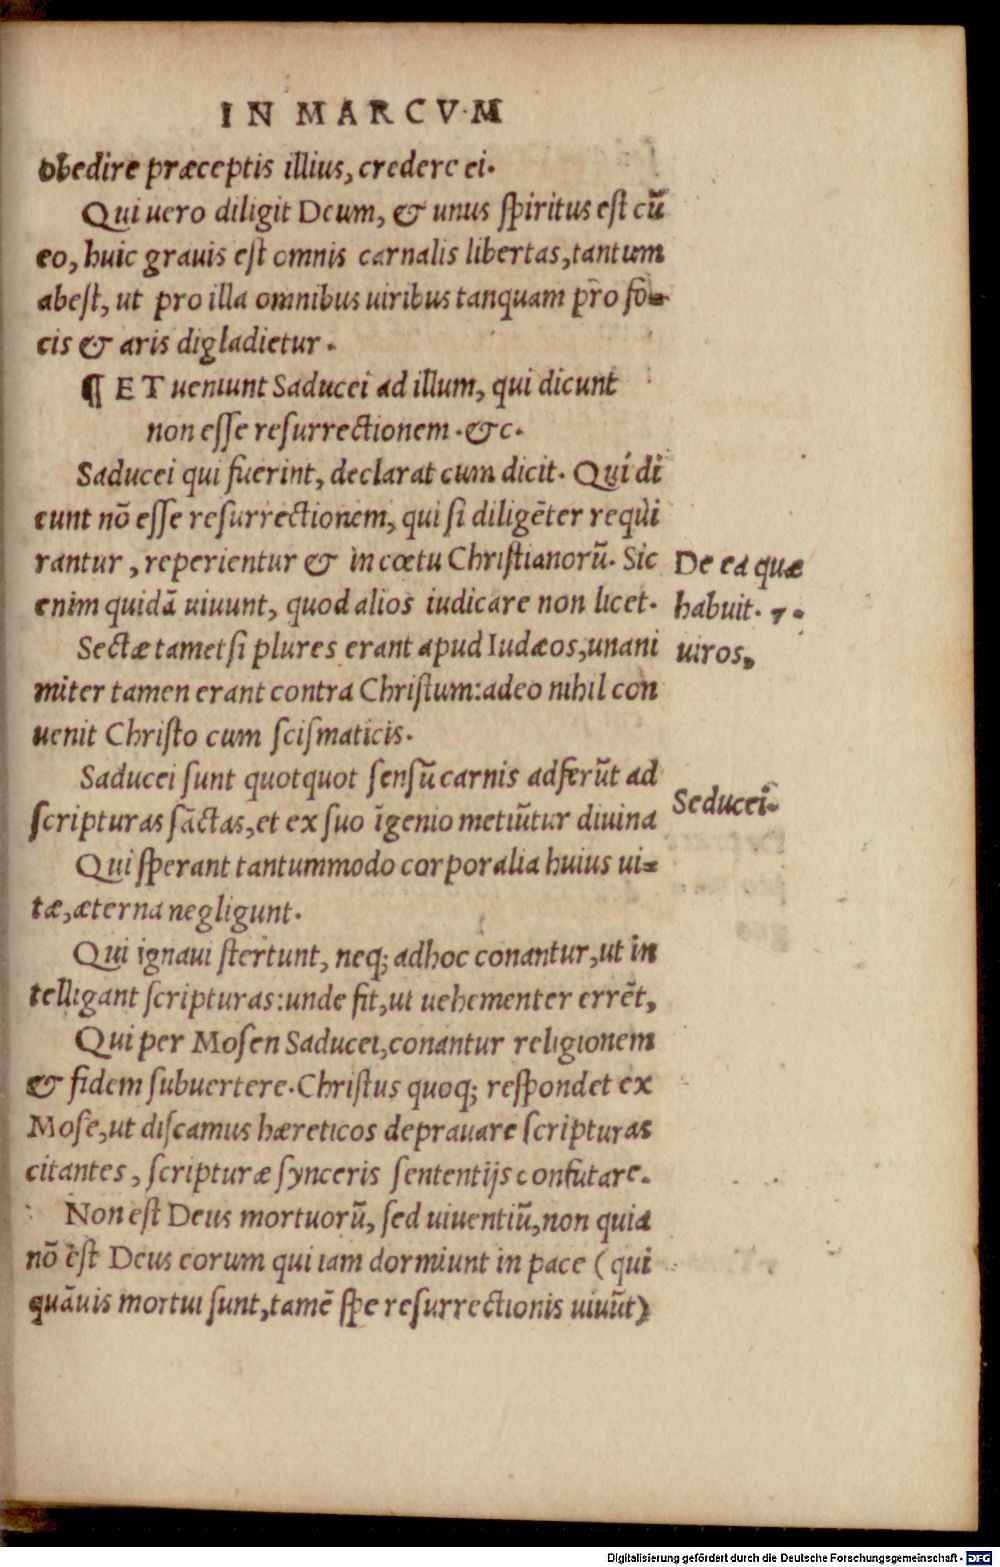 IN MARCVM
obedire præceptis illius, credere ei.
Qui uero diligit Deum, & unus spiritus est cū
eo, huic grauis est omnis carnalis libertas, tantum
abest, ut pro illa omnibus uiribus tanquam pro fo-
cis & aris digladietur.
¶ ET ueniunt Saducei ad illum, qui dicunt
non esse resurrectionem .&c.
Saducei qui fuerint, declarat cum dicit. Qui di
cunt nō esse resurrectionem, qui si diligēter requi
rantur, reperientur & in cœtu Christianorū. Sic
enim quidā uiuunt, quod alios iudicare non licet.
De ea quæ
habuit. 7.
uiros,
Sectæ tametsi plures erant apud Iudæos, unani
miter tamen erant contra Christum: adeo nihil con
uenit Christo cum scismaticis.
Saducei sunt quotquot sensū carnis adferūt ad
scripturas sāctas, et ex suo īgenio metiūtur diuina
Seducei.
Qui sperant tantummodo corporalia huius ui-
tæ, æterna negligunt.
Qui ignaui stertunt, neq; adhoc conantur, ut in
telligant scripturas: unde fit, ut uehementer errēt,
Qui per Mosen Saducei, conantur religionem
& fidem subuertere. Christus quoq; respondet ex
Mose, ut discamus hæreticos deprauare scripturas
citantes, scripturæ synceris sententijs confutare.
Non est Deus mortuorū, sed uiuentiū, non quia
nō est Deus eorum qui iam dormiunt in pace (qui
quāuis mortui sunt, tamē spe resurrectionis uiuūt)
Digitalisierung gefördert durch die Deutsche Forschungsgemeinschaft - DFG